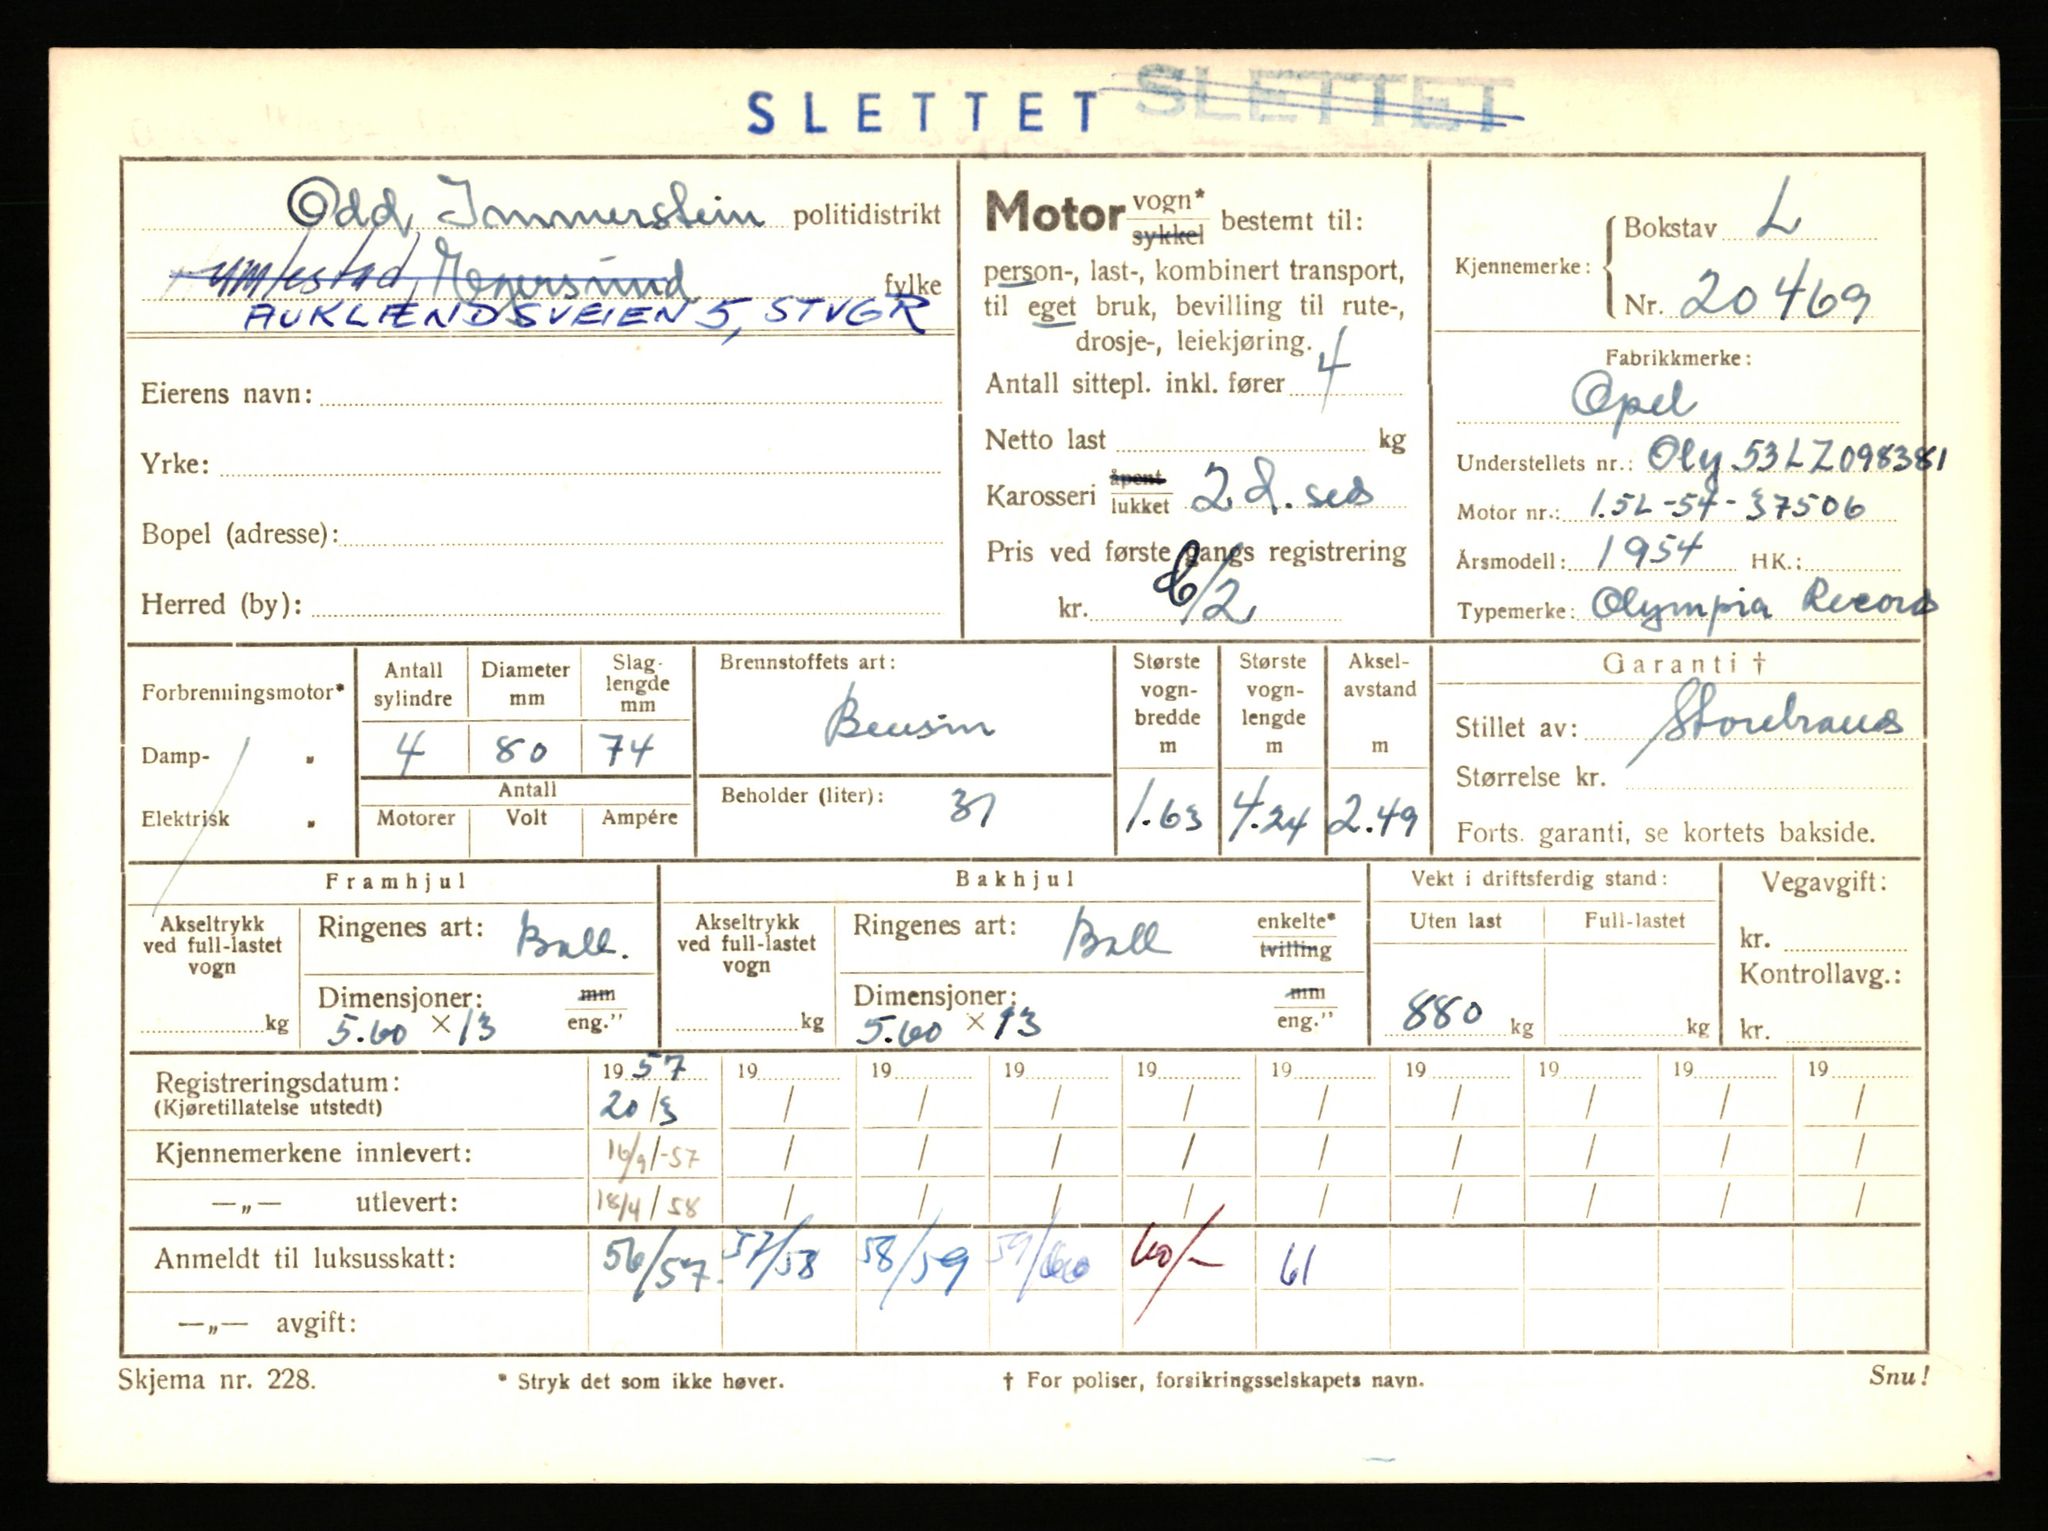 SLETTET SLETTET
Odd Immerstein politidistrikt
Egersund fylke
AUKLÆNDSVEIEN 5, STVGR
Eierens navn:
Yrke:
Bopel (adresse):
Herred (by):
Motor vogn* sykkel bestemt til:
person-, last-, kombinert transport,
til eget bruk, bevilling til rute-,
drosje-, leiekjøring.
Antall sittepl. inkl. fører 4
Netto last kg
Karosseri åpent lukket 2 d. sed
Pris ved første gangs registrering
kr. /2
Kjennemerke: Bokstav L
Nr. 20469
Fabrikkmerke:
Opel
Understellets nr.: Oly 53LZ098381
Motor nr.: 1.5L-54-37506
Årsmodell: 1954 HK.:
Typemerke: Olympia Record
Forbrenningsmotor*
Damp- „
Elektrisk „
Antall sylindre Diameter mm Slag-lengde mm
4 80 74
Antall
Motorer Volt Ampére
Brennstoffets art:
Bensin
Beholder (liter): 31
Største vogn-bredde m Største vogn-lengde m Aksel-avstand m
1.63 4.24 2.49
Garanti †
Stillet av: Storebrand
Størrelse kr.
Forts. garanti, se kortets bakside.
Framhjul
Akseltrykk ved full-lastet vogn
kg
Ringenes art: Ball.
Dimensjoner: mm
5.60 × 13 eng."
Bakhjul
Akseltrykk ved full-lastet vogn
kg
Ringenes art: Ball enkelte* tvilling
Dimensjoner: mm
5.60 × 13 eng."
Vekt i driftsferdig stand:
Uten last Full-lastet
880 kg kg
Vegavgift:
kr.
Kontrollavg.:
kr.
Registreringsdatum: 1957 19 19 19 19 19 19 19 19 19
(Kjøretillatelse utstedt) 20/3 / / / / / / / / /
Kjennemerkene innlevert: 16/9/-57 / / / / / / / / /
—„— utlevert: 18/4/58 / / / / / / / / /
Anmeldt til luksusskatt: 56/57. 57/58 58/59 59/60 60/- 61
—„— avgift:
Skjema nr. 228. * Stryk det som ikke høver. † For poliser, forsikringsselskapets navn. Snu!